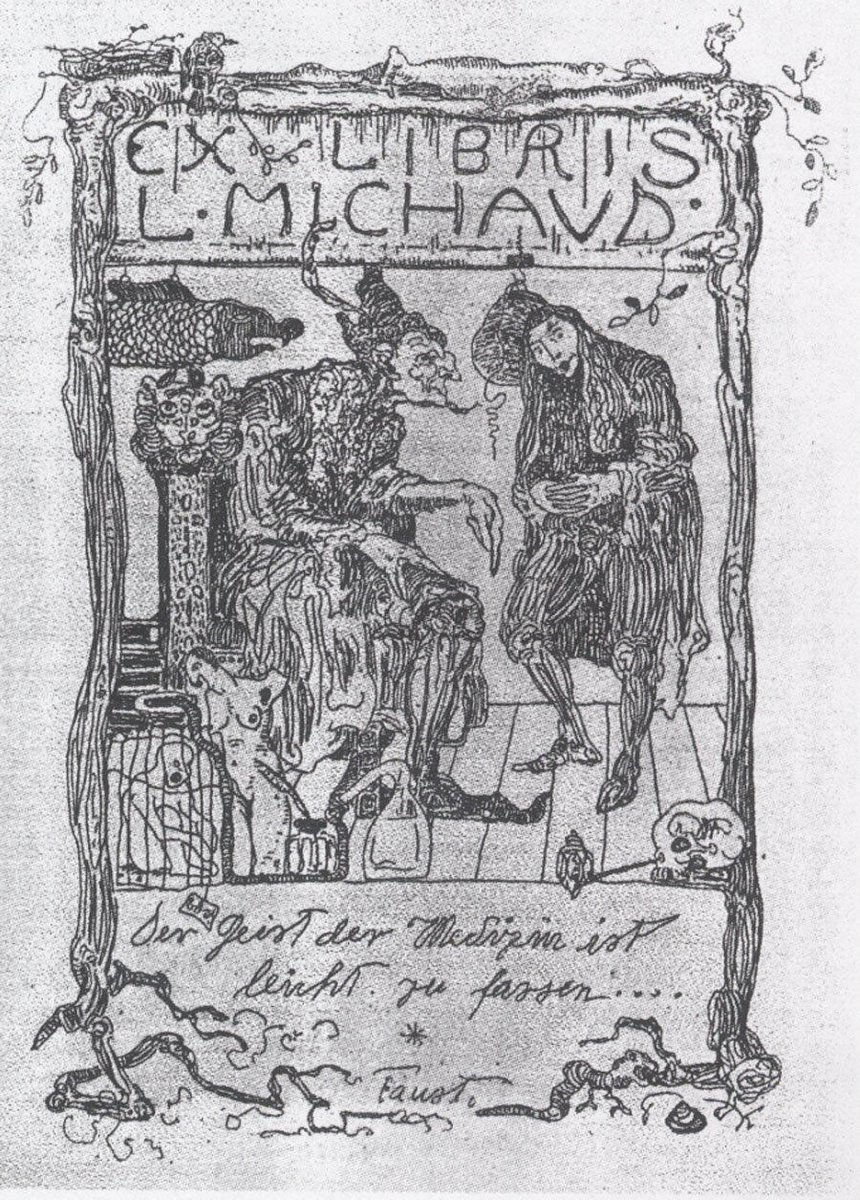 EX LIBRIS
L. MICHAVD.
Der Geist der Medizin ist
leicht zu fassen....
*
Faust.